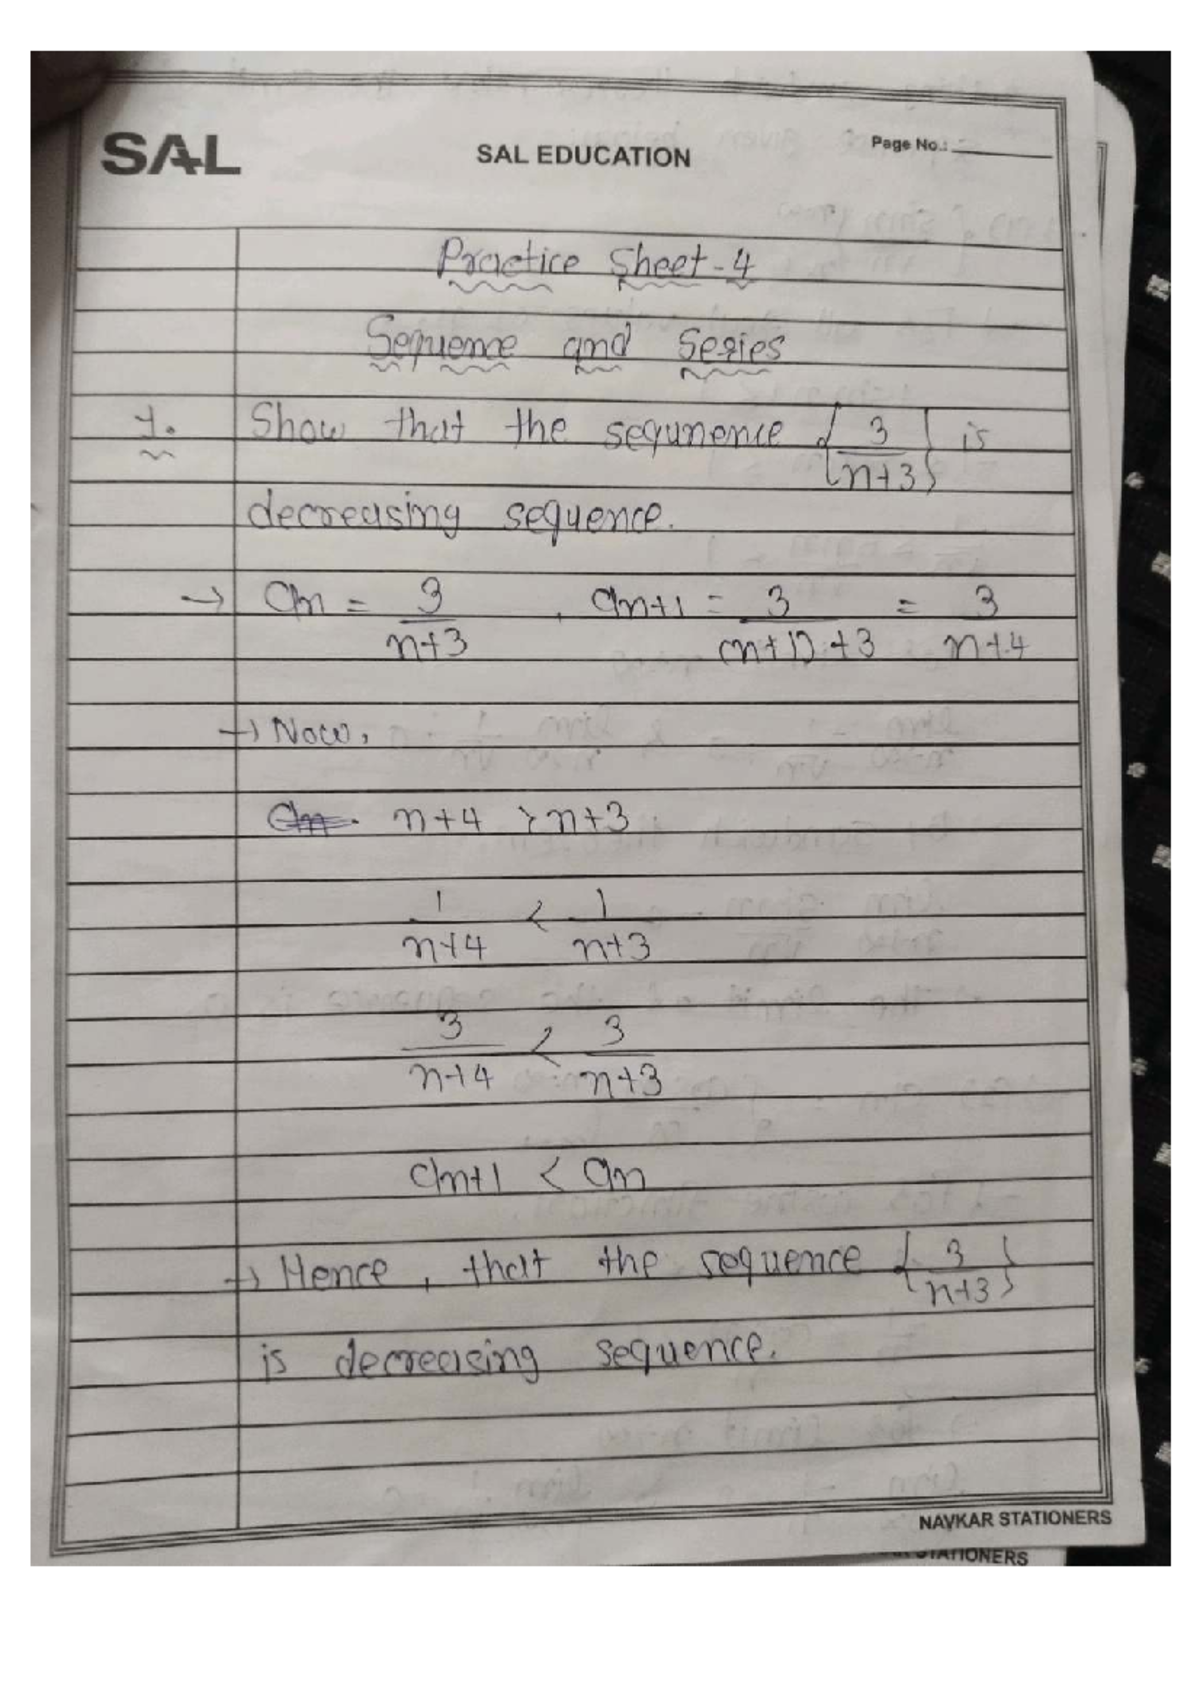 SAL
SAL EDUCATION
Page No.:
Practice Sheet-4
Sequence and Series
1. Show that the sequnence {3/(n+3)} is
decreasing sequence.
→ an = 3/(n+3) , an+1 = 3/((n+1)+3) = 3/(n+4)
→ Now,
n+4 > n+3
1/(n+4) < 1/(n+3)
3/(n+4) < 3/(n+3)
an+1 < an
→ Hence, that the sequence {3/(n+3)}
is decreasing sequence.
NAVKAR STATIONERS
STATIONERS